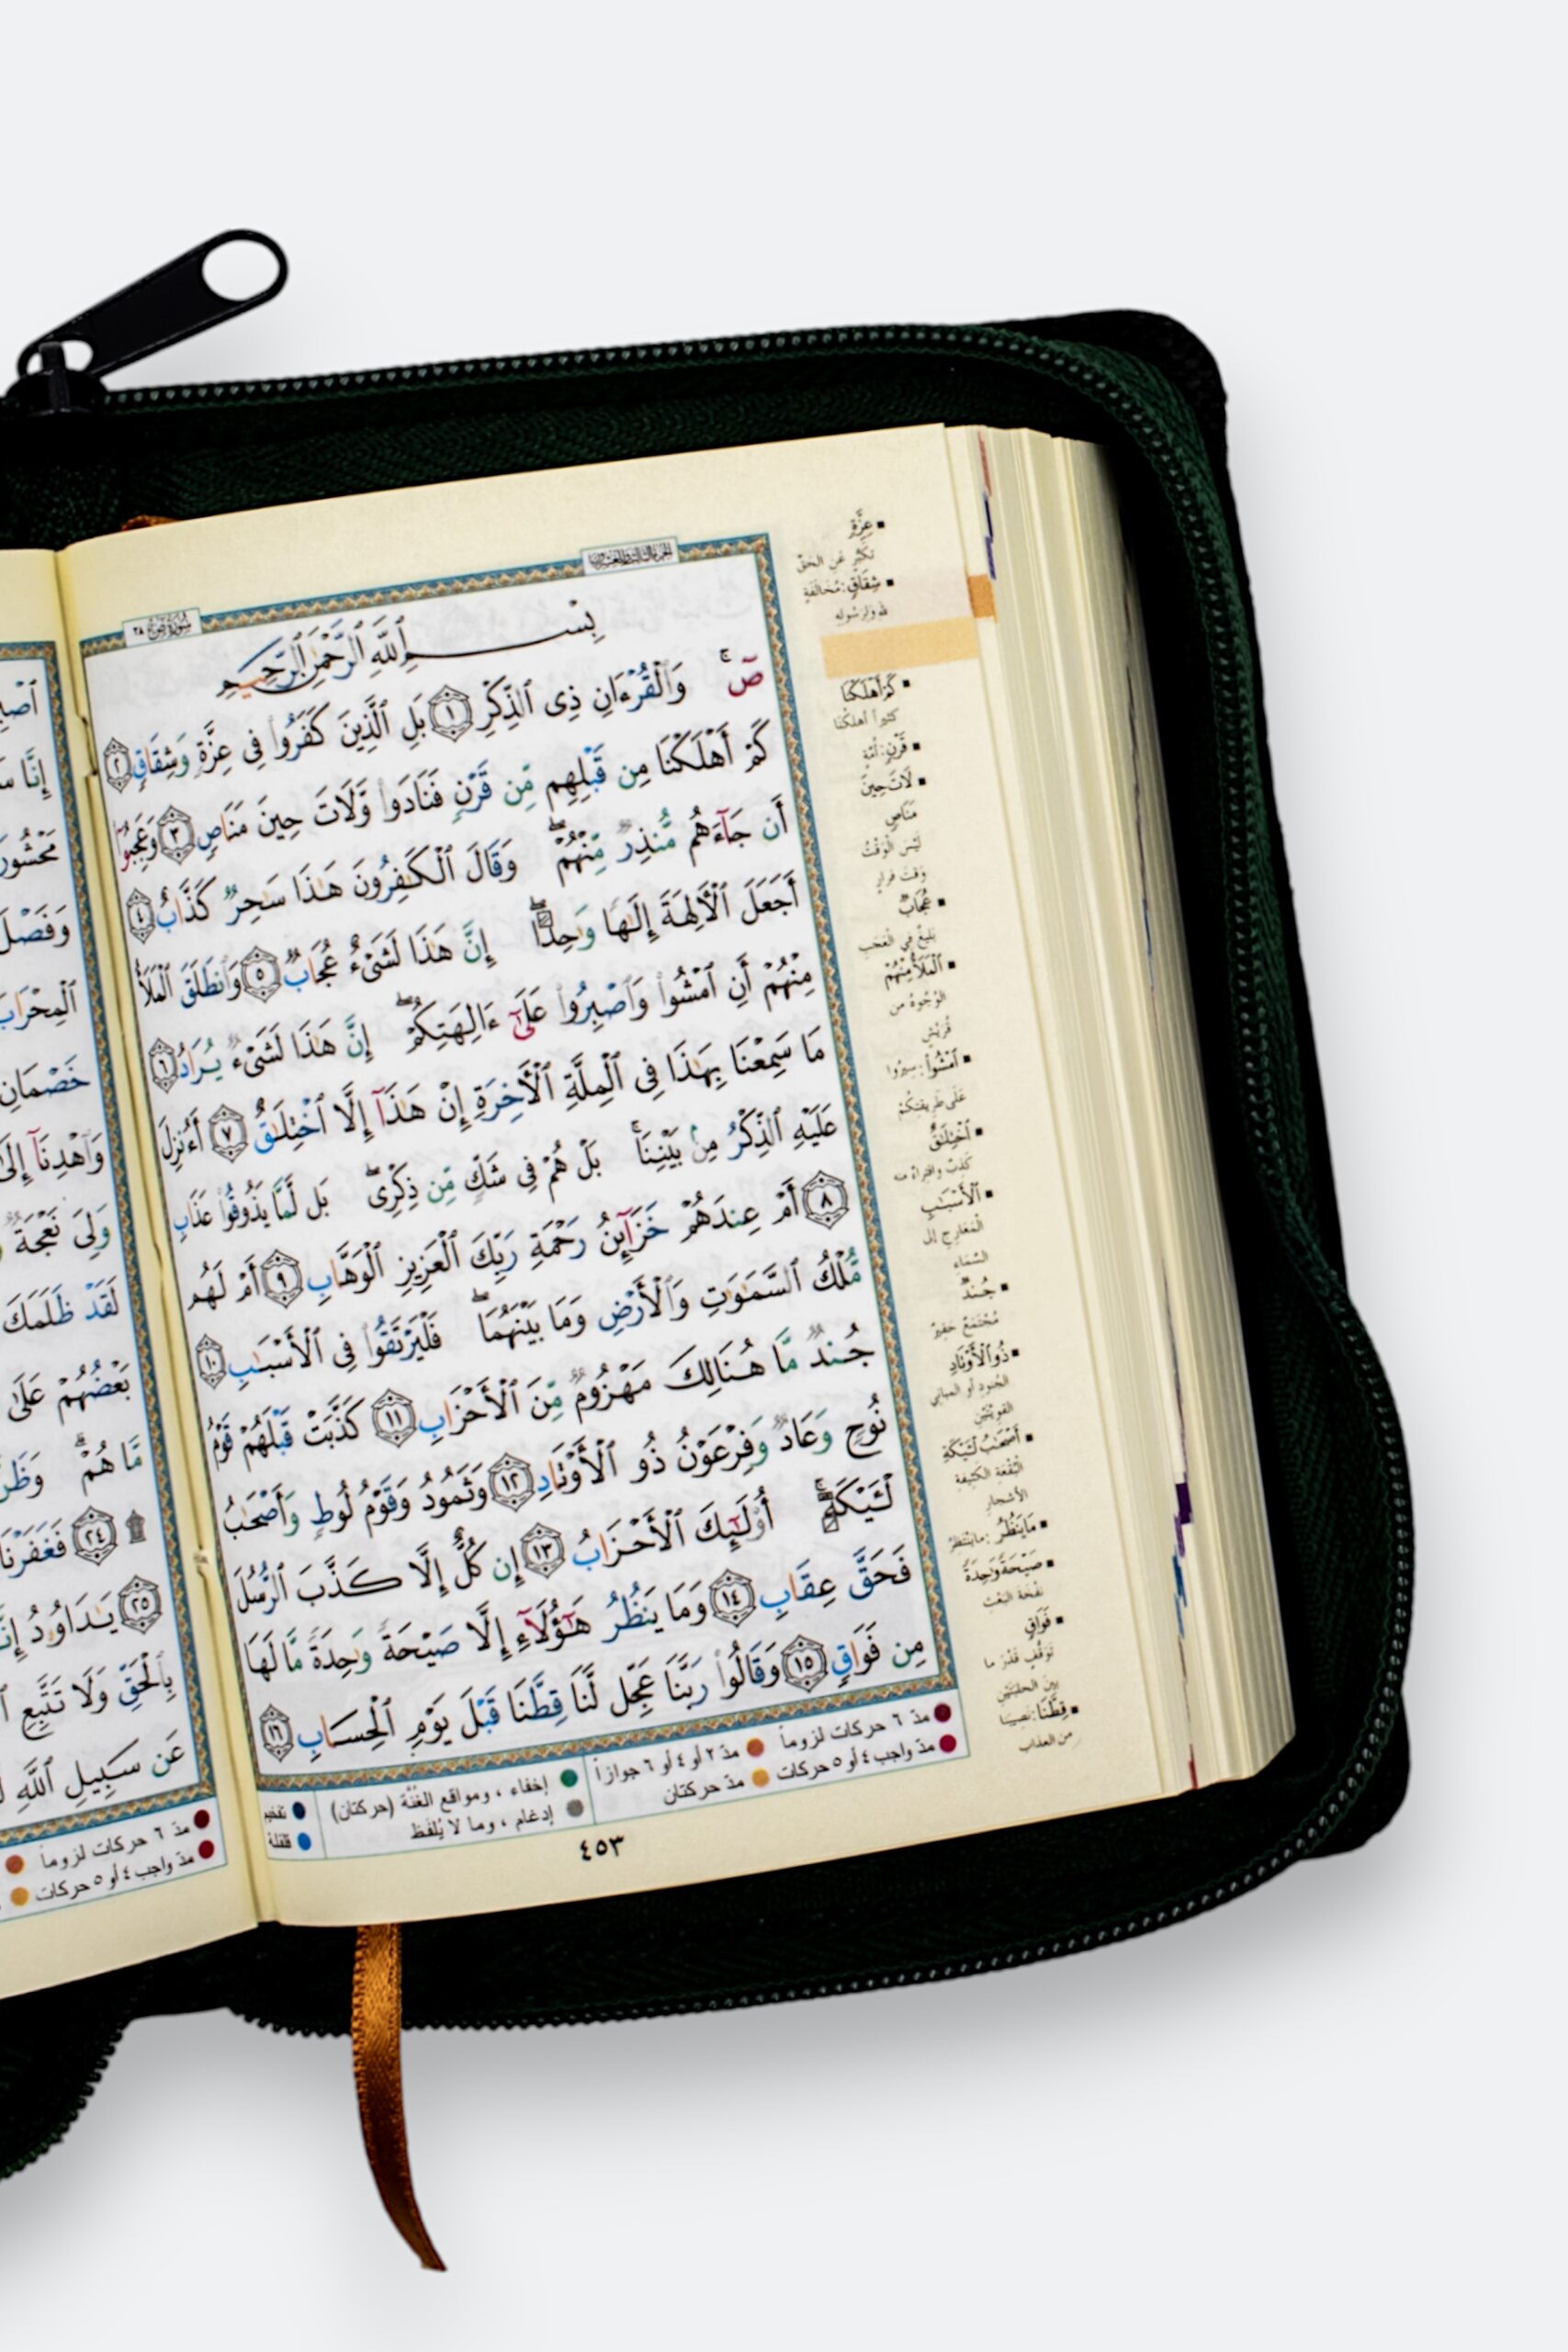 سُورَةُ صٓ ٣٨
الجزء الثالث والعشرون
بِسْمِ ٱللَّهِ ٱلرَّحْمَٰنِ ٱلرَّحِيمِ
صٓ ۚ وَٱلْقُرْءَانِ ذِى ٱلذِّكْرِ ١ بَلِ ٱلَّذِينَ كَفَرُوا۟ فِى عِزَّةٍ وَشِقَاقٍ ٢
كَمْ أَهْلَكْنَا مِن قَبْلِهِم مِّن قَرْنٍ فَنَادَوا۟ وَّلَاتَ حِينَ مَنَاصٍ ٣ وَعَجِبُوٓا۟
أَن جَآءَهُم مُّنذِرٌ مِّنْهُمْ ۖ وَقَالَ ٱلْكَٰفِرُونَ هَٰذَا سَٰحِرٌ كَذَّابٌ ٤
أَجَعَلَ ٱلْءَالِهَةَ إِلَٰهًا وَٰحِدًا ۖ إِنَّ هَٰذَا لَشَىْءٌ عُجَابٌ ٥ وَٱنطَلَقَ ٱلْمَلَأُ
مِنْهُمْ أَنِ ٱمْشُوا۟ وَٱصْبِرُوا۟ عَلَىٰٓ ءَالِهَتِكُمْ ۖ إِنَّ هَٰذَا لَشَىْءٌ يُرَادُ ٦
مَا سَمِعْنَا بِهَٰذَا فِى ٱلْمِلَّةِ ٱلْءَاخِرَةِ إِنْ هَٰذَآ إِلَّا ٱخْتِلَٰقٌ ٧ أَءُنزِلَ
عَلَيْهِ ٱلذِّكْرُ مِنۢ بَيْنِنَا ۚ بَلْ هُمْ فِى شَكٍّ مِّن ذِكْرِى ۖ بَل لَّمَّا يَذُوقُوا۟ عَذَابِ
٨ أَمْ عِندَهُمْ خَزَآئِنُ رَحْمَةِ رَبِّكَ ٱلْعَزِيزِ ٱلْوَهَّابِ ٩ أَمْ لَهُم
مُّلْكُ ٱلسَّمَٰوَٰتِ وَٱلْأَرْضِ وَمَا بَيْنَهُمَا ۖ فَلْيَرْتَقُوا۟ فِى ٱلْأَسْبَٰبِ ١٠
جُندٌ مَّا هُنَالِكَ مَهْزُومٌ مِّنَ ٱلْأَحْزَابِ ١١ كَذَّبَتْ قَبْلَهُمْ قَوْمُ
نُوحٍ وَعَادٌ وَفِرْعَوْنُ ذُو ٱلْأَوْتَادِ ١٢ وَثَمُودُ وَقَوْمُ لُوطٍ وَأَصْحَٰبُ
لْـَٔيْكَةِ ۚ أُو۟لَٰٓئِكَ ٱلْأَحْزَابُ ١٣ إِن كُلٌّ إِلَّا كَذَّبَ ٱلرُّسُلَ
فَحَقَّ عِقَابِ ١٤ وَمَا يَنظُرُ هَٰٓؤُلَآءِ إِلَّا صَيْحَةً وَٰحِدَةً مَّا لَهَا
مِن فَوَاقٍ ١٥ وَقَالُوا۟ رَبَّنَا عَجِّل لَّنَا قِطَّنَا قَبْلَ يَوْمِ ٱلْحِسَابِ ١٦
مدّ ٦ حركات لزوماً مدّ ٢ أو ٤ أو ٦ جوازاً
مدّ واجب ٤ أو ٥ حركات مدّ حركتان
إخفاء ، ومواقع الغُنَّة (حركتان)
إدغام ، وما لا يُلفَظ
قلقلة
٤٥٣
عِزَّةٍ
تكبُّر عن الحق
شِقَاقٍ : مُخالفةٍ
لله ولرسوله
كَمْ أَهْلَكْنَا
كثيراً أهلكنا
قَرْنٍ : أُمَّةٍ
لَاتَ حِينَ
مَنَاصٍ
ليس الوقتُ
وقتَ فرارٍ
عُجَابٌ
بليغٌ في العجب
ٱلْمَلَأُ مِنْهُمْ
الوجوهُ من
قريش
ٱمْشُوا۟ : سيروا
على طريقتكم
ٱخْتِلَٰقٌ
كذبٌ وافتراءٌ منه
ٱلْأَسْبَٰبِ
المعارج إلى
السَّماء
جُندٌ
مُجتمعٌ حقيرٌ
ذُو ٱلْأَوْتَادِ
الجنود أو المباني
القويَّتين
أَصْحَٰبُ لْـَٔيْكَةِ
البُقعة الكثيفة
الأشجار
مَا يَنظُرُ : ما ينتظرُ
صَيْحَةً وَٰحِدَةً
نفخة البعث
فَوَاقٍ
توقُّفٍ قدْرَ ما
بين الحلبتين
قِطَّنَا : نصيبنا
من العذاب
إِنَّا
لَقَدْ ظَلَمَكَ
بَعْضُهُمْ عَلَىٰ
مَّا هُمْ ۗ وَظَنَّ
٢٤ فَغَفَرْنَا
٢٥ يَٰدَاوُۥدُ إِنَّا
بِٱلْحَقِّ وَلَا تَتَّبِعِ
عَن سَبِيلِ ٱللَّهِ
مدّ ٦ حركات لزوماً
مدّ واجب ٤ أو ٥ حركات